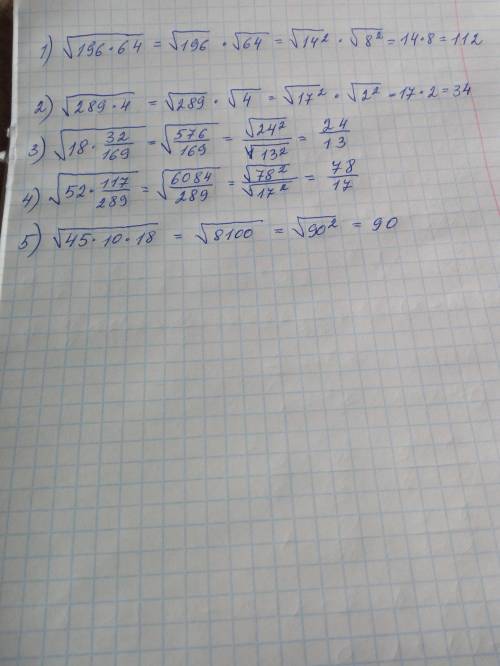 1) √(196·64) = √196 · √64 = √14² · √8² = 14·8 = 112
2) √(289·4) = √289 · √4 = √17² · √2² = 17·2 = 34
3) √(18·32/169) = √(576/169) = √24²/√13² = 24/13
4) √(52·117/289) = √(6084/289) = √78²/√17² = 78/17
5) √(45·10·18) = √8100 = √90² = 90